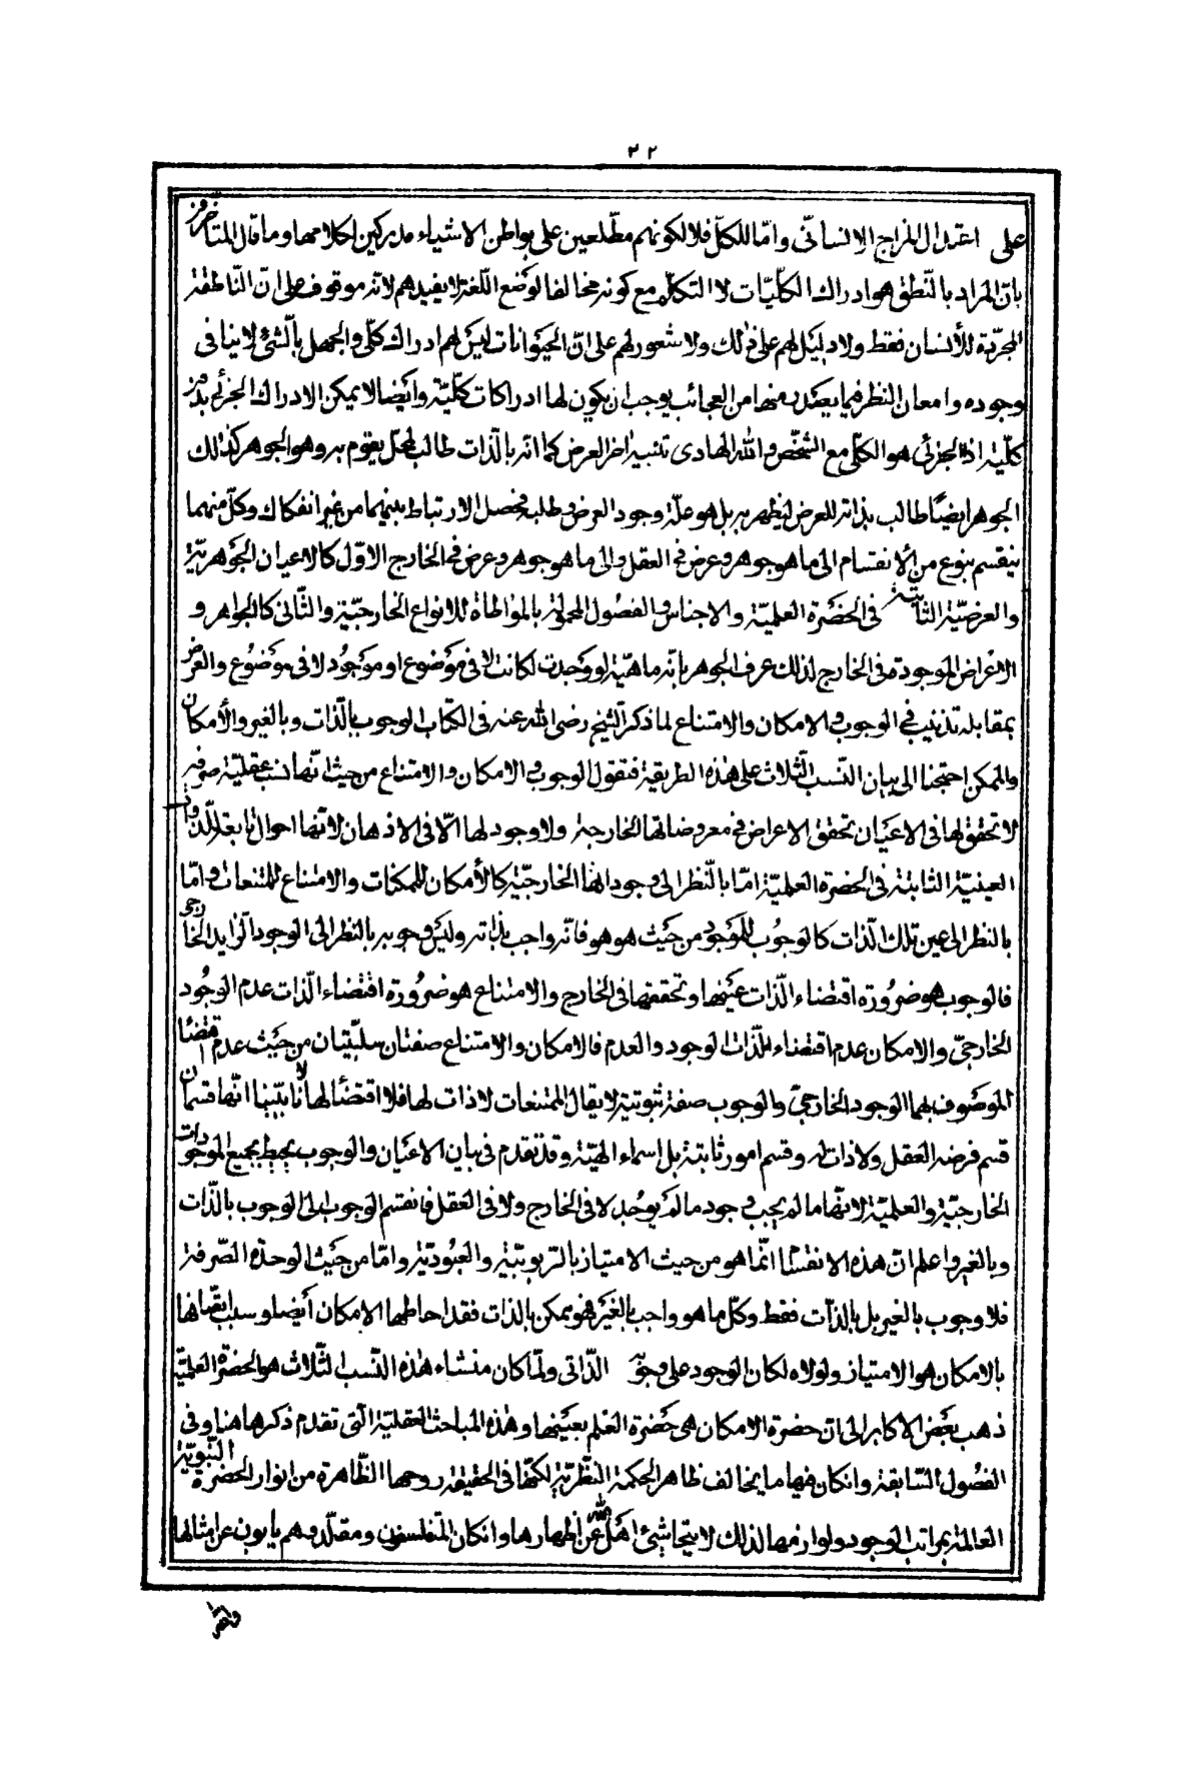 ٢٢
على اعتدال المزاج الانسانىّ وامّا للكلّ فلا لكونهم مطّلعين على بواطن الاشياء مدركين لكلامها وما قال المتاخّرون
بانّ المراد بالنّطق هو ادراك الكلّيّات لا التكلّم مع كونه مخالفا لوضع اللّغة لا يفيدهم لانّه موقوف على انّ النّاطقة
المجرّدة للأنسان فقط ولا دليل لهم على ذلك ولا شعور لهم على انّ الحيوانات ليس لهم ادراك كلّى والجهل بالشّئ لا ينافى
وجوده وامعان النظر فيما يصدر منها من العجائب يوجب ان يكون لها ادراكات كلّيّة وايضا لا يمكن الادراك الجزئى بدون
كلّيّه اذ الجزئى هو الكلّى مع التشخّص والله الهادى تنبيه اخر العرض كما انّه بالذّات طالب لمحلّ يقوم به وهو الجوهر كذلك
الجوهر ايضًا طالب بذاته للعرض ليظهر به بل هو علّة وجود العرض وطلبه فحصل الارتباط بينهما من غير انفكاك وكلّ منهما
ينقسم بنوع من الأنقسام الى ما هو جوهر وعرض فى العقل والى ما هو جوهر وعرض فى الخارج الاوّل كالاعيان الجوهريّة
والعرضيّة الثابتة فى الحضرة العلميّة والاجناس والفصول المحمولة بالمواطاة للانواع الخارجيّة والثّانى كالجواهر و
الاعراض الموجودة فى الخارج لذلك عرف الجوهر بانّه ماهيّة لو وجدت لكانت لا فى موضوع او موجود لا فى موضوع والعرض
بمقابله تذنيب فى الوجوب والامكان والامتناع لما ذكر الشّيخ رضى الله عنه فى الكتاب الوجوب بالّذات وبالغير والأمكان
والممكن احتجنا الى بيان النّسب الثّلاث على هذه الطريقة فنقول الوجوب والامكان والامتناع من حيث انّها نسب عقليّة صرفة
لا تحقق لها فى الاعيان تحقق الاعراض فى معروضاتها الخارجية ولا وجود لها الّا فى الاذهان لانّها احوال تابعة للذّوات
العينيّة الثابتة فى الحضرة العلميّة امّا بالنّظر الى وجوداتها الخارجيّة كالأمكان للممكنات والامتناع للممتنعات وامّا
بالنظر الى عين تلك الذّات كالوجوب للوجود من حيث هو هو فانّه واجب بذاته وليس وجوبه بالنظر الى الوجود الزّايد الخارجى
فالوجوب هو ضرورة اقتضاء الذّات عينها وتحققها فى الخارج والامتناع هو ضرورة اقتضاء الذّات عدم الوجود
الخارجىّ والامكان عدم اقتضاء الذّات الوجود والعدم فالامكان والامتناع صفتان سلبيّتان من حيث عدم اقتضاء
الموصوف بهما الوجود الخارجىّ والوجوب صفة ثبوتية لا يقال الممتنعات لا ذات لها فلا اقتضاء لها لأنّا بيّنا انّها قسمان
قسم فرضه العقل ولا ذات له وقسم امور ثابتة بل اسماء الهيّة وقد تقدم فى بيان الاعيان والوجوب يحيط بجميع الموجودات
الخارجيّة والعلميّة لانّها ما لم يجب وجودها لم يوجد لا فى الخارج ولا فى العقل فانقسم الوجوب الى الوجوب بالذّات
وبالغير واعلم انّ هذه الانقسام انّما هو من حيث الامتياز بالرّبوبيّة والعبوديّة وامّا من حيث الوحدة الصّرفة
فلا وجوب بالغير بل بالذّات فقط وكلّ ما هو واجب بالغير فهو ممكن بالذات فقد احاطها الامكان أيضا وسبب اتّصافها
بالامكان هو الامتياز ولولاه لكان الوجود على وجوبه الذّاتى ولمّا كان منشاء هذه النّسب الثّلاث هو الحضرة العلميّة
ذهب بعض الاكابر الى انّ حضرة الامكان هى حضرة العلم بعينها وهذه المباحث العقليّة الّتى تقدم ذكرها هنا وفى
الفصول السّابقة وان كان فيها ما يخالف ظاهر الحكمة النّظريّة لكنّها فى الحقيقة روحها الظّاهرة من انوار الحضرة النّبويّة
العالمة بمراتب الوجود ولوازمها لذلك لا يتحاشئ اهل الله عن اظهارها وان كان المتفلسفون ومقلّدوهم يابون عن امثالها